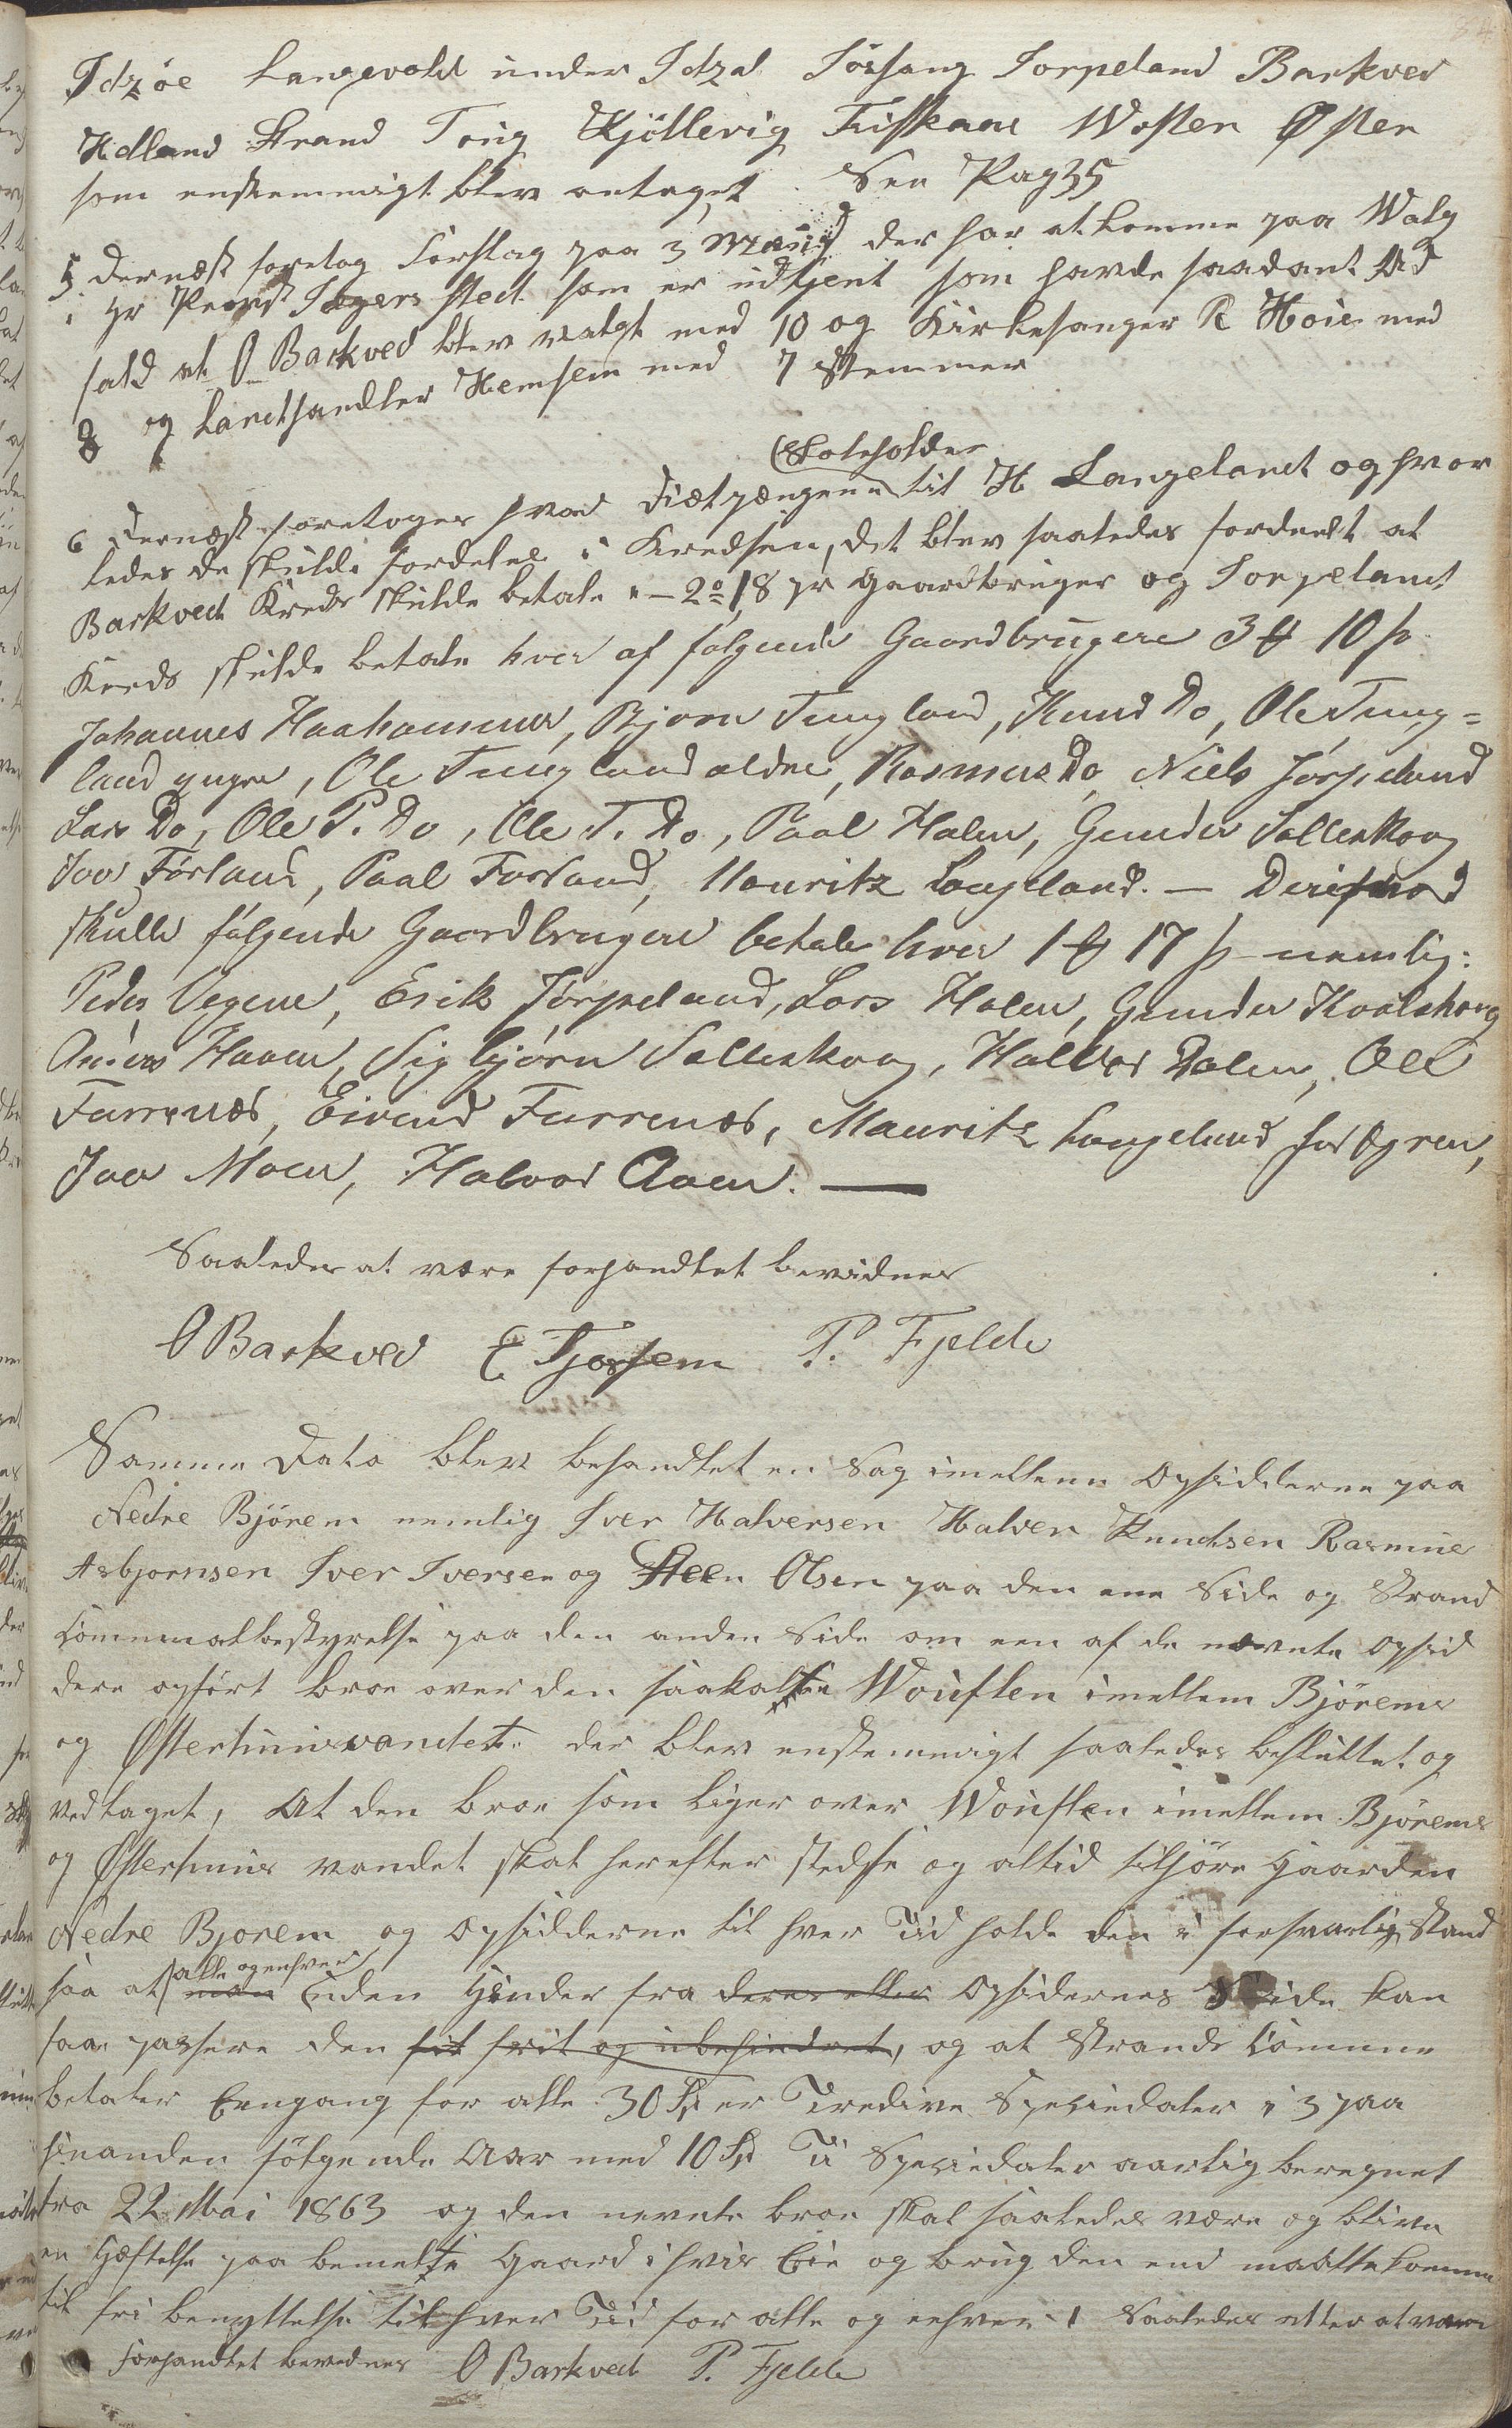 Idzöe Langevold under Idzal Jössang Jörpeland Barkved
Hdland Strand Toug Kjöllevig Fiskaae Wosten Østen
som enstemmigt blev antaget. See Pag 35
5 Dernæst foretog Forslag paa 3 Mænd der har at komme paa Walg
i Hr Provst Jagers sted som er udtjent som havde saadant Ud
fald at O Barkved blev valgt med 10 og Kirkesanger R Hoie med
8 og Landhandler Hemsem med 7 Stemmer
6 Dernæst foretoges hvad Diætpængene Skoleholder til H Langeland og hvor
ledes de skulde fordeles i Kredsen, det blev saaledes fordeelt at
Barkved Kreds skulde betale " – 2 o 18 pr Gaardbruger og Jorpeland
Kreds skulde betale hver af følgende Gaardbrugere 3 ₰ 10 ß
Johannes Haahammer, Bjørn Tungland, Knud Do, Ole Tung=
land yngre, Ole Tungland ældre, Rasmus Do, Niels Jørpeland
Lars Do, Ole P. Do, Ole T. Do, Paal Halen, Gunder Solleskoog
Joer Førland, Paal Forland, Mouritz Longeland. — Derimod
skulle følgende Gaardbrugere betale hver 1 ₰ 17 ß nemlig:
Peder Vegene, Erik Jørpeland, Lars Halen, Gunder Kvalshoug
Anders Haaen, Sigbjørn Solleskoog, Halvor Dalen, Ole
Furrenæs, Eivind Furrenæs, Mauritz Longeland for Ogren,
Joer Moen, Halvor Aaen. —
Saaledes at være forhandlet bevidnes
O Barkved E Tjossem P. Fjelde
Samme Dato blev behandlet en Sag imellem Opsidderne paa
Nedre Bjørem nemlig Iver Halversen Halver Knudsen Rasmus
Asbjornsen Iver Iversen og Steen Olsen paa den ene Side og Strand
Communalbestyrelse paa den anden Side om een af de nævnte Opsid
dere opført Broe over den saakaldte Wousten imellem Bjørems
og Østerhuusvandet. der blev enstemmigt saaledes besluttet og
vedtaget, At den Broe som liger over Wousten imellem Bjørems
og Østerhuus vandet skal herefter stedse og altid tilhøre Gaarden
Nedre Bjorem og Opsidderne til hver Tid holde den i forsvarlig Stand
saa at man alle og enhver uden Hinder fra deres eller Opsidernes Side kan
faa passere den frit og ubehindret, og at Strands Commune
betaler Eengang for alle 30 Spd er Tredive Speciedaler i 3 paa
hinanden følgende Aar med 10 Spd Ti Speciedaler aarlig beregnet
fra 22 Mai 1863 og den nevnte Broe skal saaledes være og blive
en Hæftelse paa bemeldte Gaard i hvis Eie og brug den end maatte komme
til fri benyttelse til hver Tid for alle og enhver. Saaledes atter at være
forhandlet bevidnes O Barkved P. Fjelde